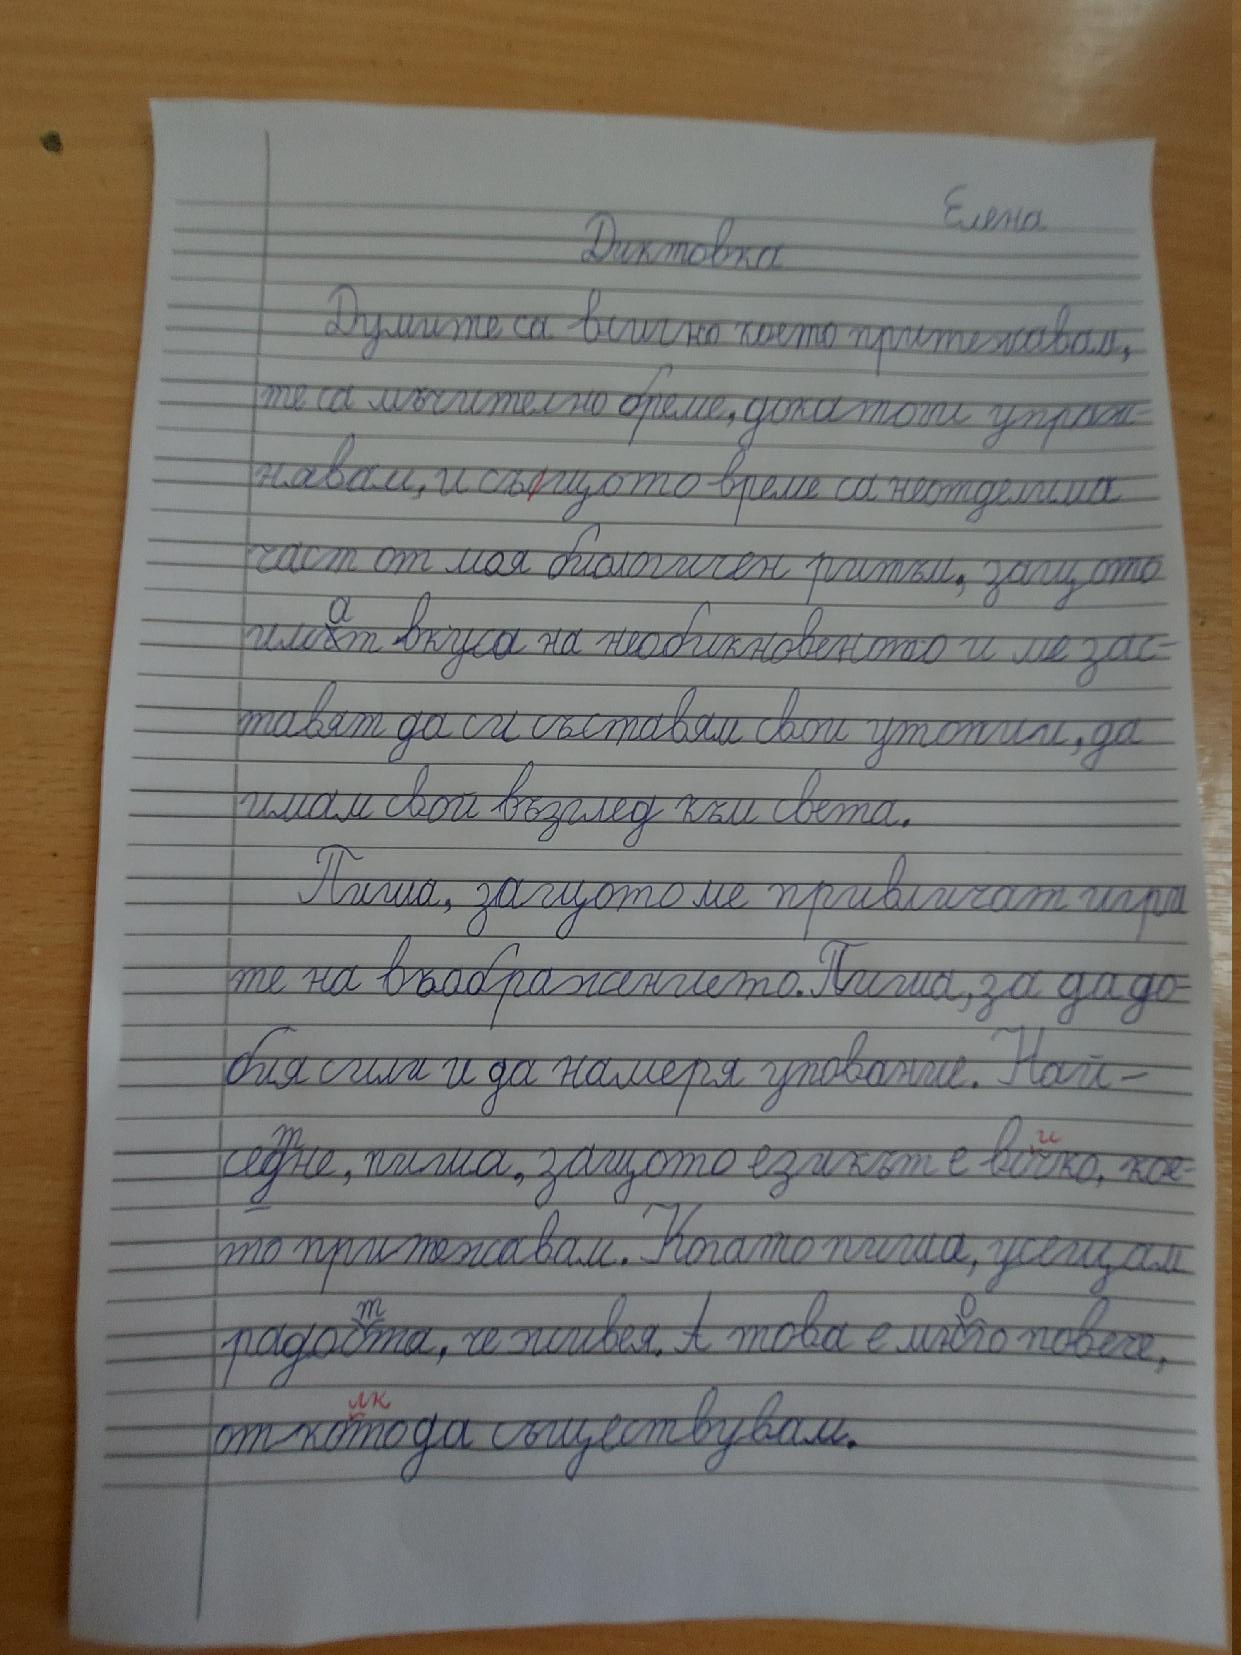 Елена
Диктовка
Думите са всичко което притежавам,
те са мъчително бреме, докато ги упраж-
навам, и същото време са неотделима
част от моя биологичен ритъм, защото
имат вкуса на необикновеното и ме зас-
тавят да си съставям свои утопии, да
имам свой възглед към света.
Пиша, защото ме привличат игри
те на въображението. Пиша, за да до-
бия сили и да намеря упование. Най-
сетне, пиша, защото езикът е всичко, кое-
то притежавам. Когато пиша, усещам
радостта, че живея. А това е много повече,
отколкото да съществувам.